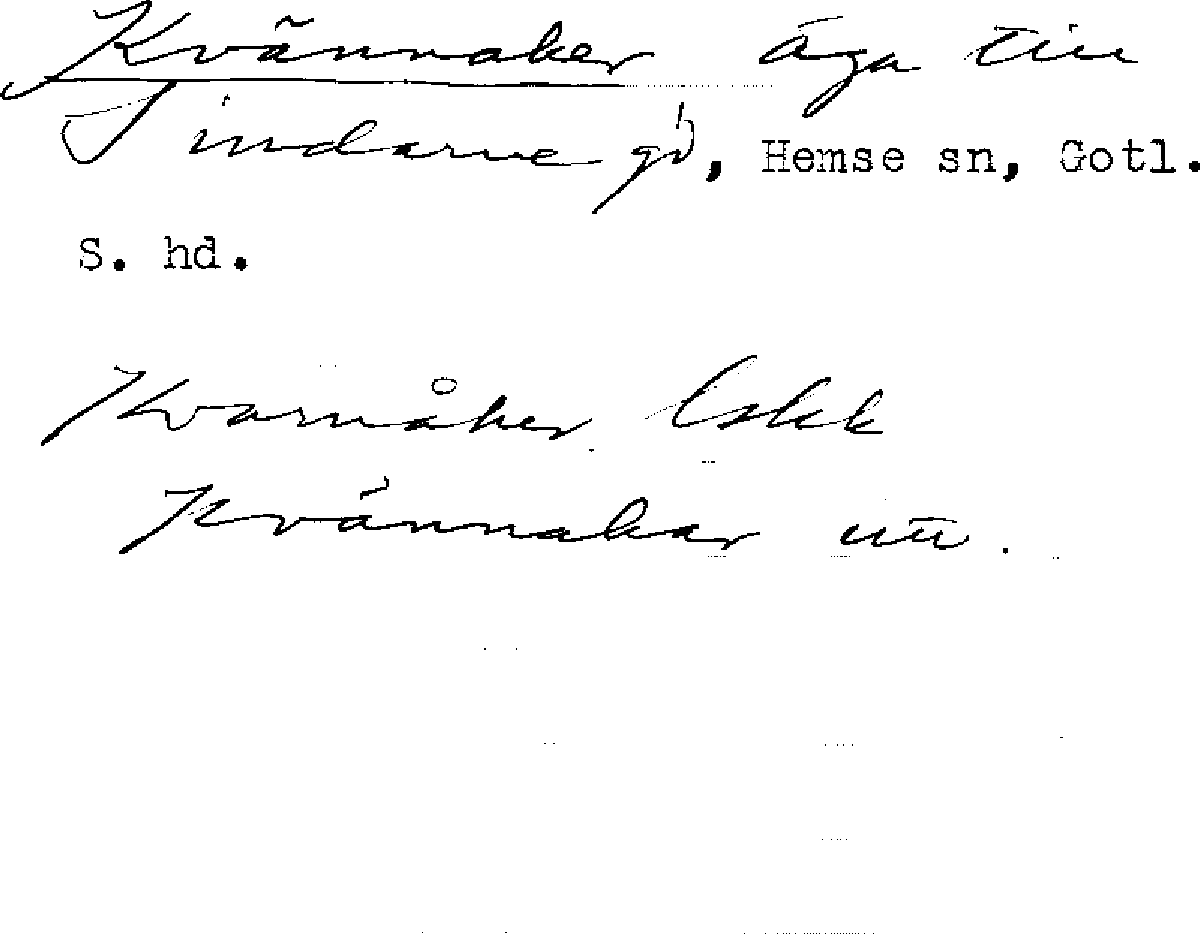 Kvännaker äga till
Sindarve gd, Hemse sn, Gotl.
S. hd.
Kvarnåker
Kvännakar utt.